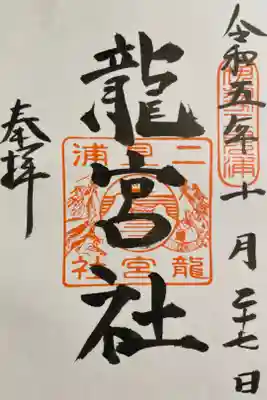 令和五年十一月二十七日
龍宮社
奉拝
二見浦
龍宮社